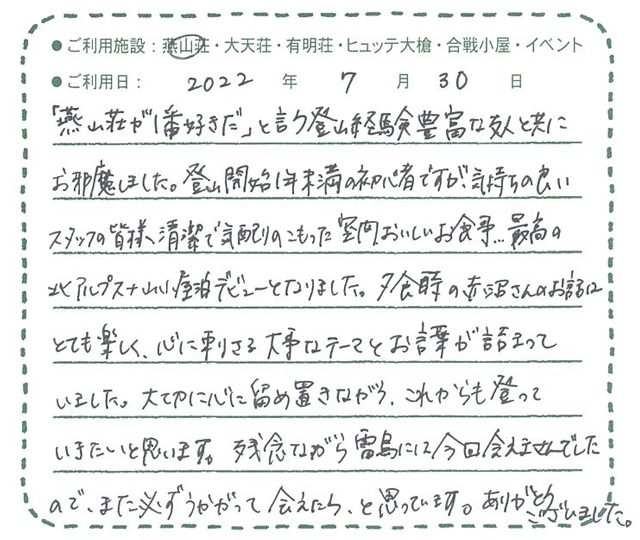 ●ご利用施設：燕山荘・大天荘・有明荘・ヒュッテ大槍・合戦小屋・イベント
●ご利用日： 2022 年 7 月 30 日
「燕山荘が1番好きだ」と言う登山経験豊富な友人と共に
お邪魔しました。登山開始1年未満の初心者ですが、気持ちの良い
スタッフの皆様、清潔で気配りのこもった空間、おいしいお食事…最高の
北アルプス+山小屋泊デビューとなりました。夕食時の赤沼さんのお話は
とても楽しく、心に刺さる大事なテーマとお言葉が詰まって
いました。大切に心に留め置きながら、これからも登って
いきたいと思います。残念ながら雷鳥には今回会えませんでした
ので、また必ずうかがって会えたら、と思っています。ありがとう
ございました。